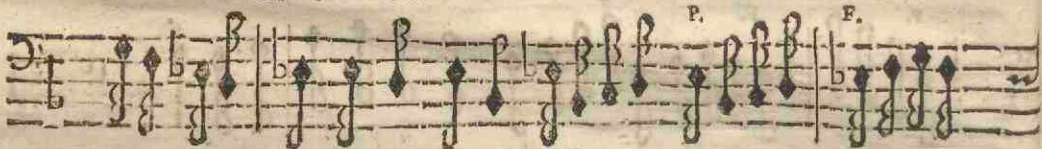 P. F.